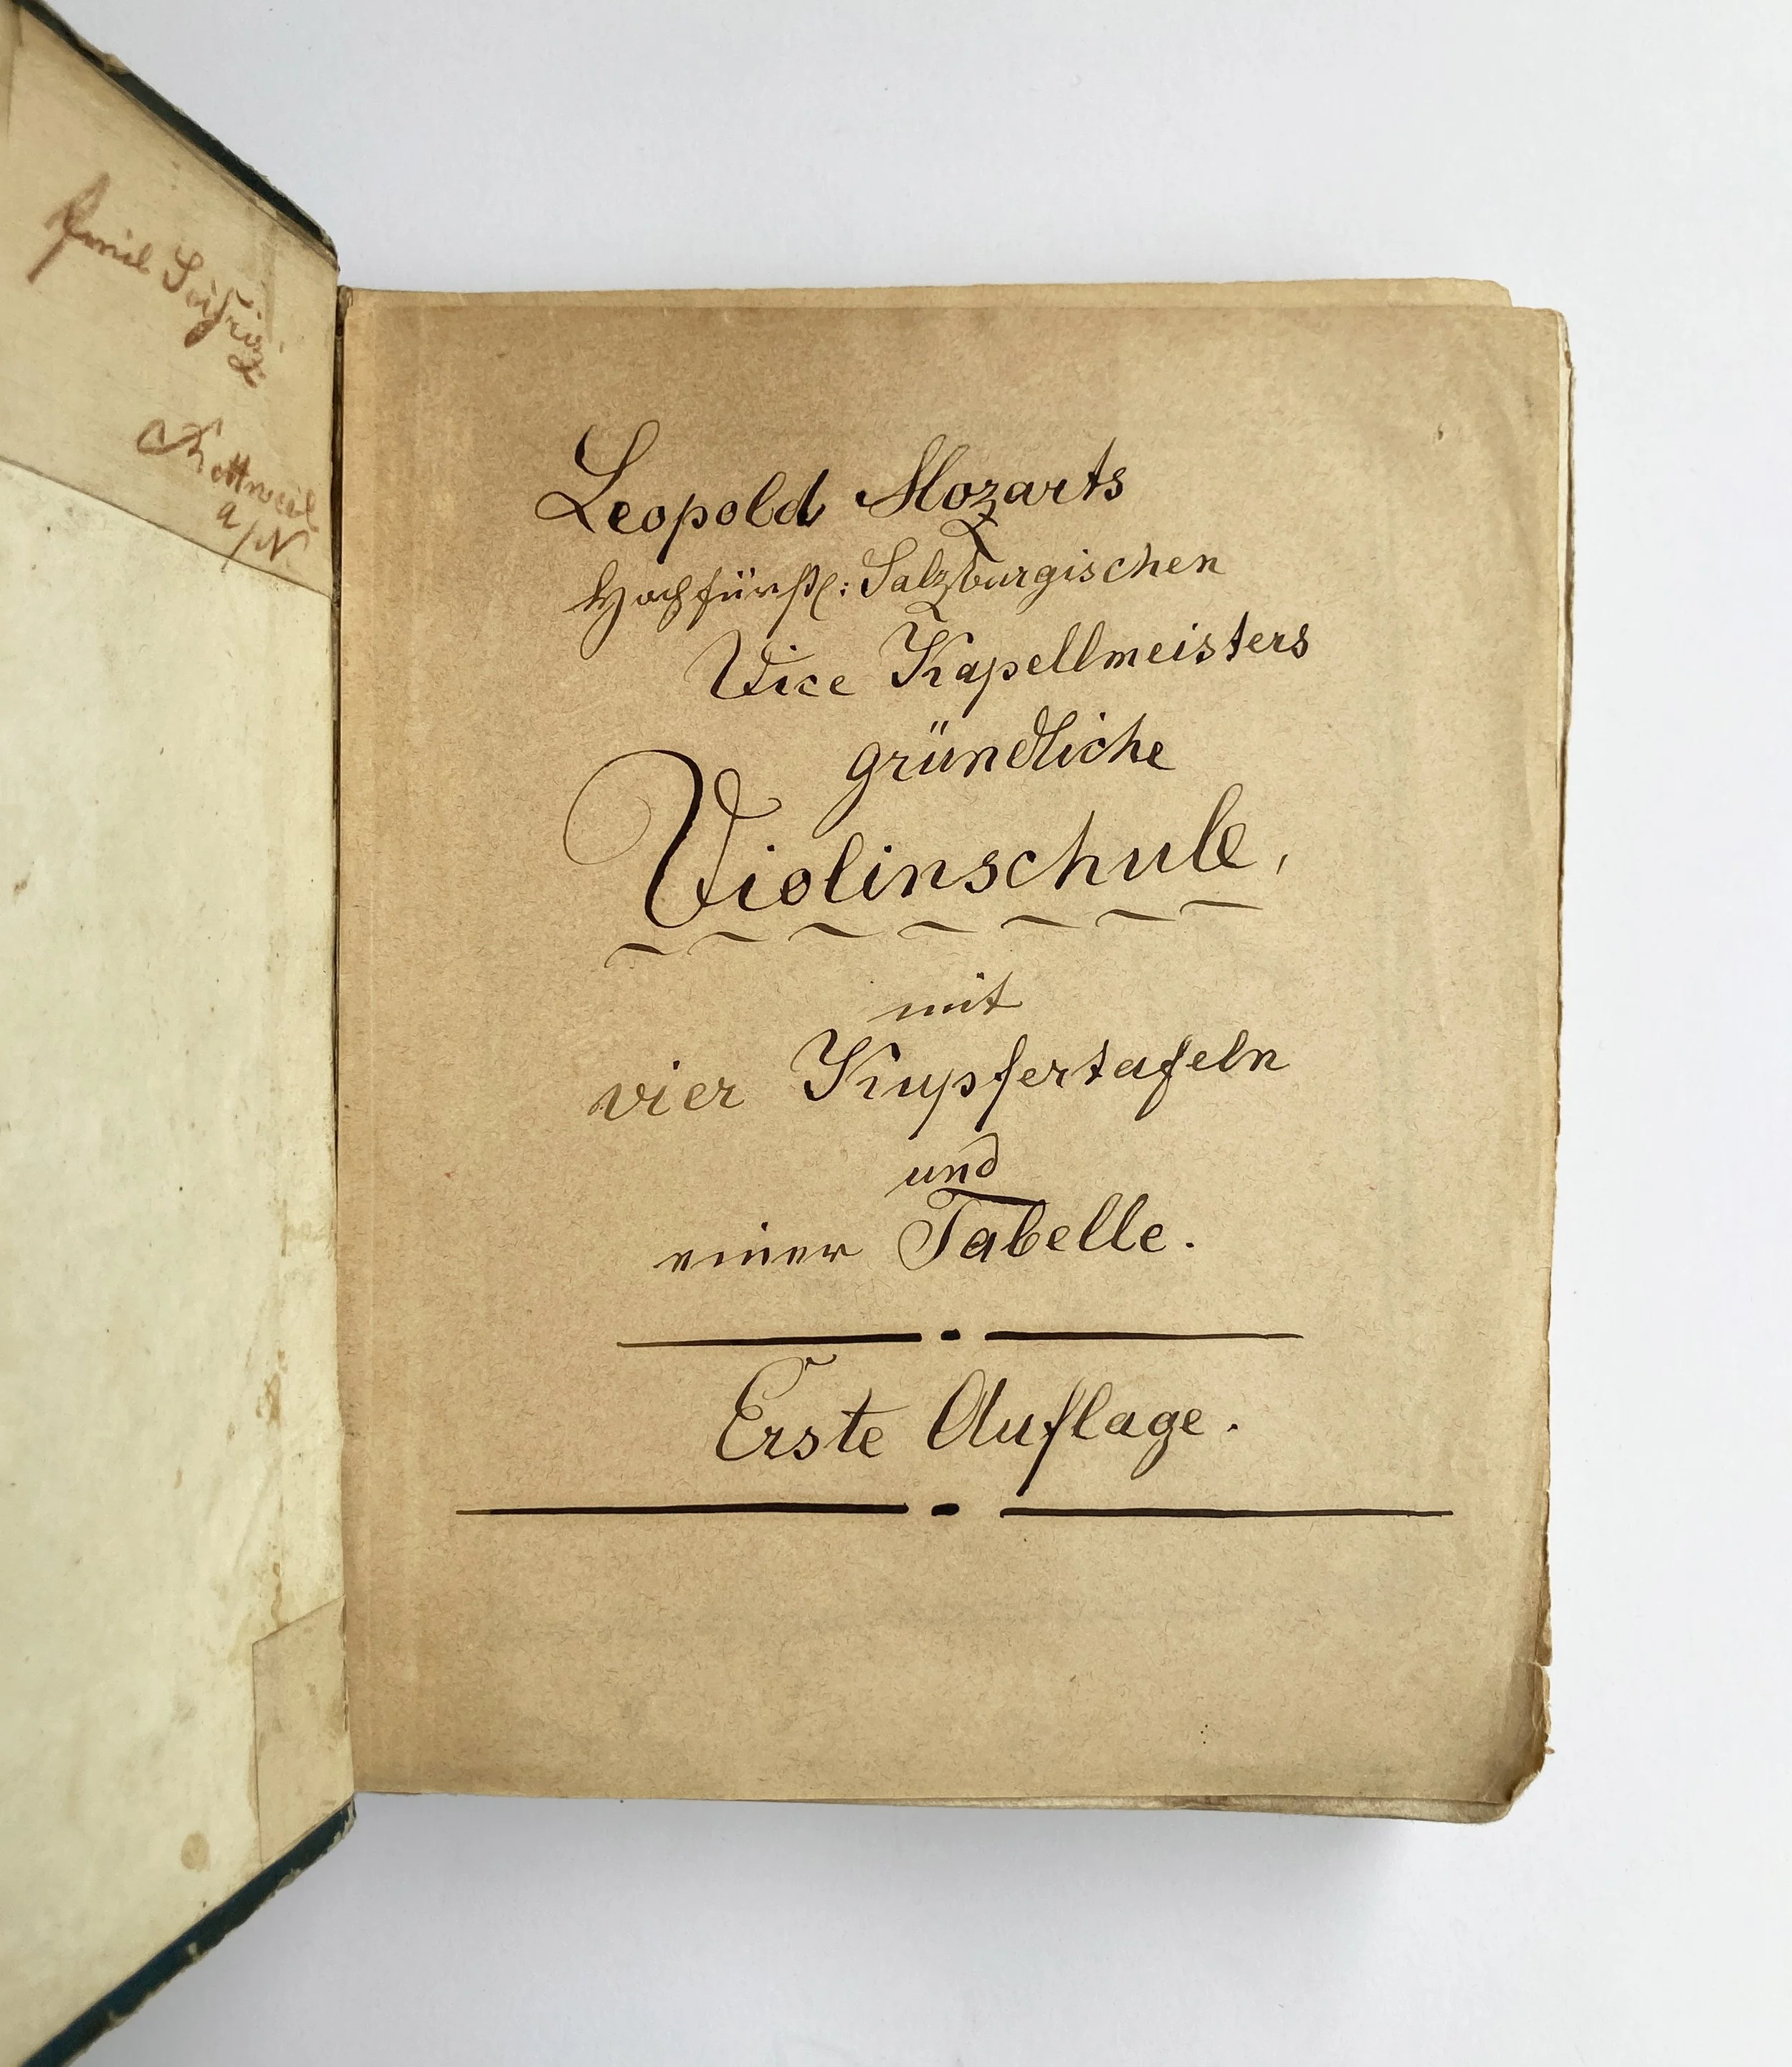 Emil Seifriz
Rottweil
a/N.
Leopold Mozarts
Hochfürstl: Salzburgischen
Vice Kapellmeisters
gründliche
Violinschule,
mit
vier Kupfertafeln
und
einer Tabelle.
Erste Auflage.